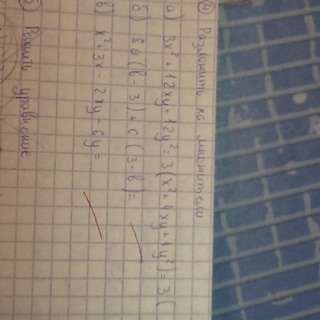 ④ Разложить на множители
а) 3x² + 12xy + 12y² = 3(x² + 4xy + 4y²) = 3(
б) 8a(b - 3) + c(3 - b) =
в) x² + 3x - 2xy + 6y =
Решить уравнение